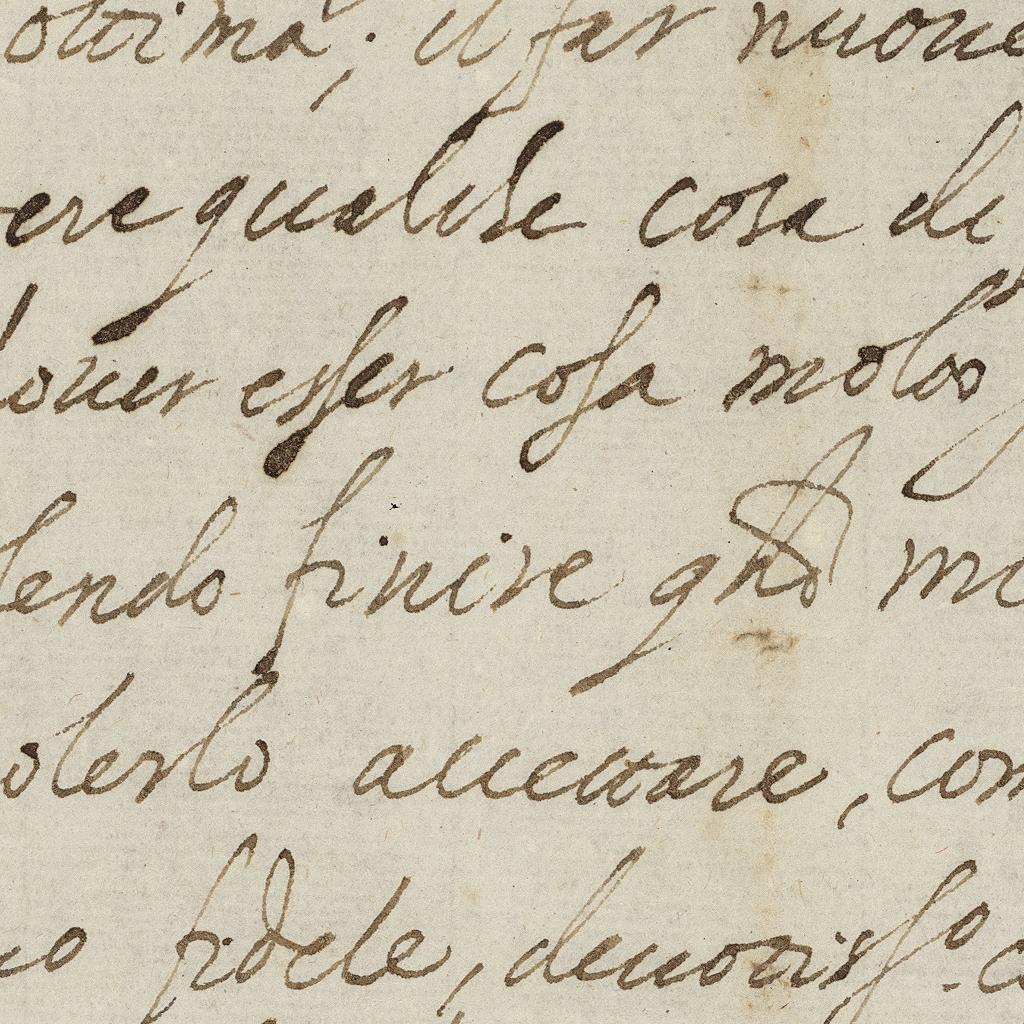 ottima; il far nuoue
ere qualche cosa di
douer esser cosa molo
endo finire ghº me
olerlo accettare, com
uo fidele, deuotissº. e